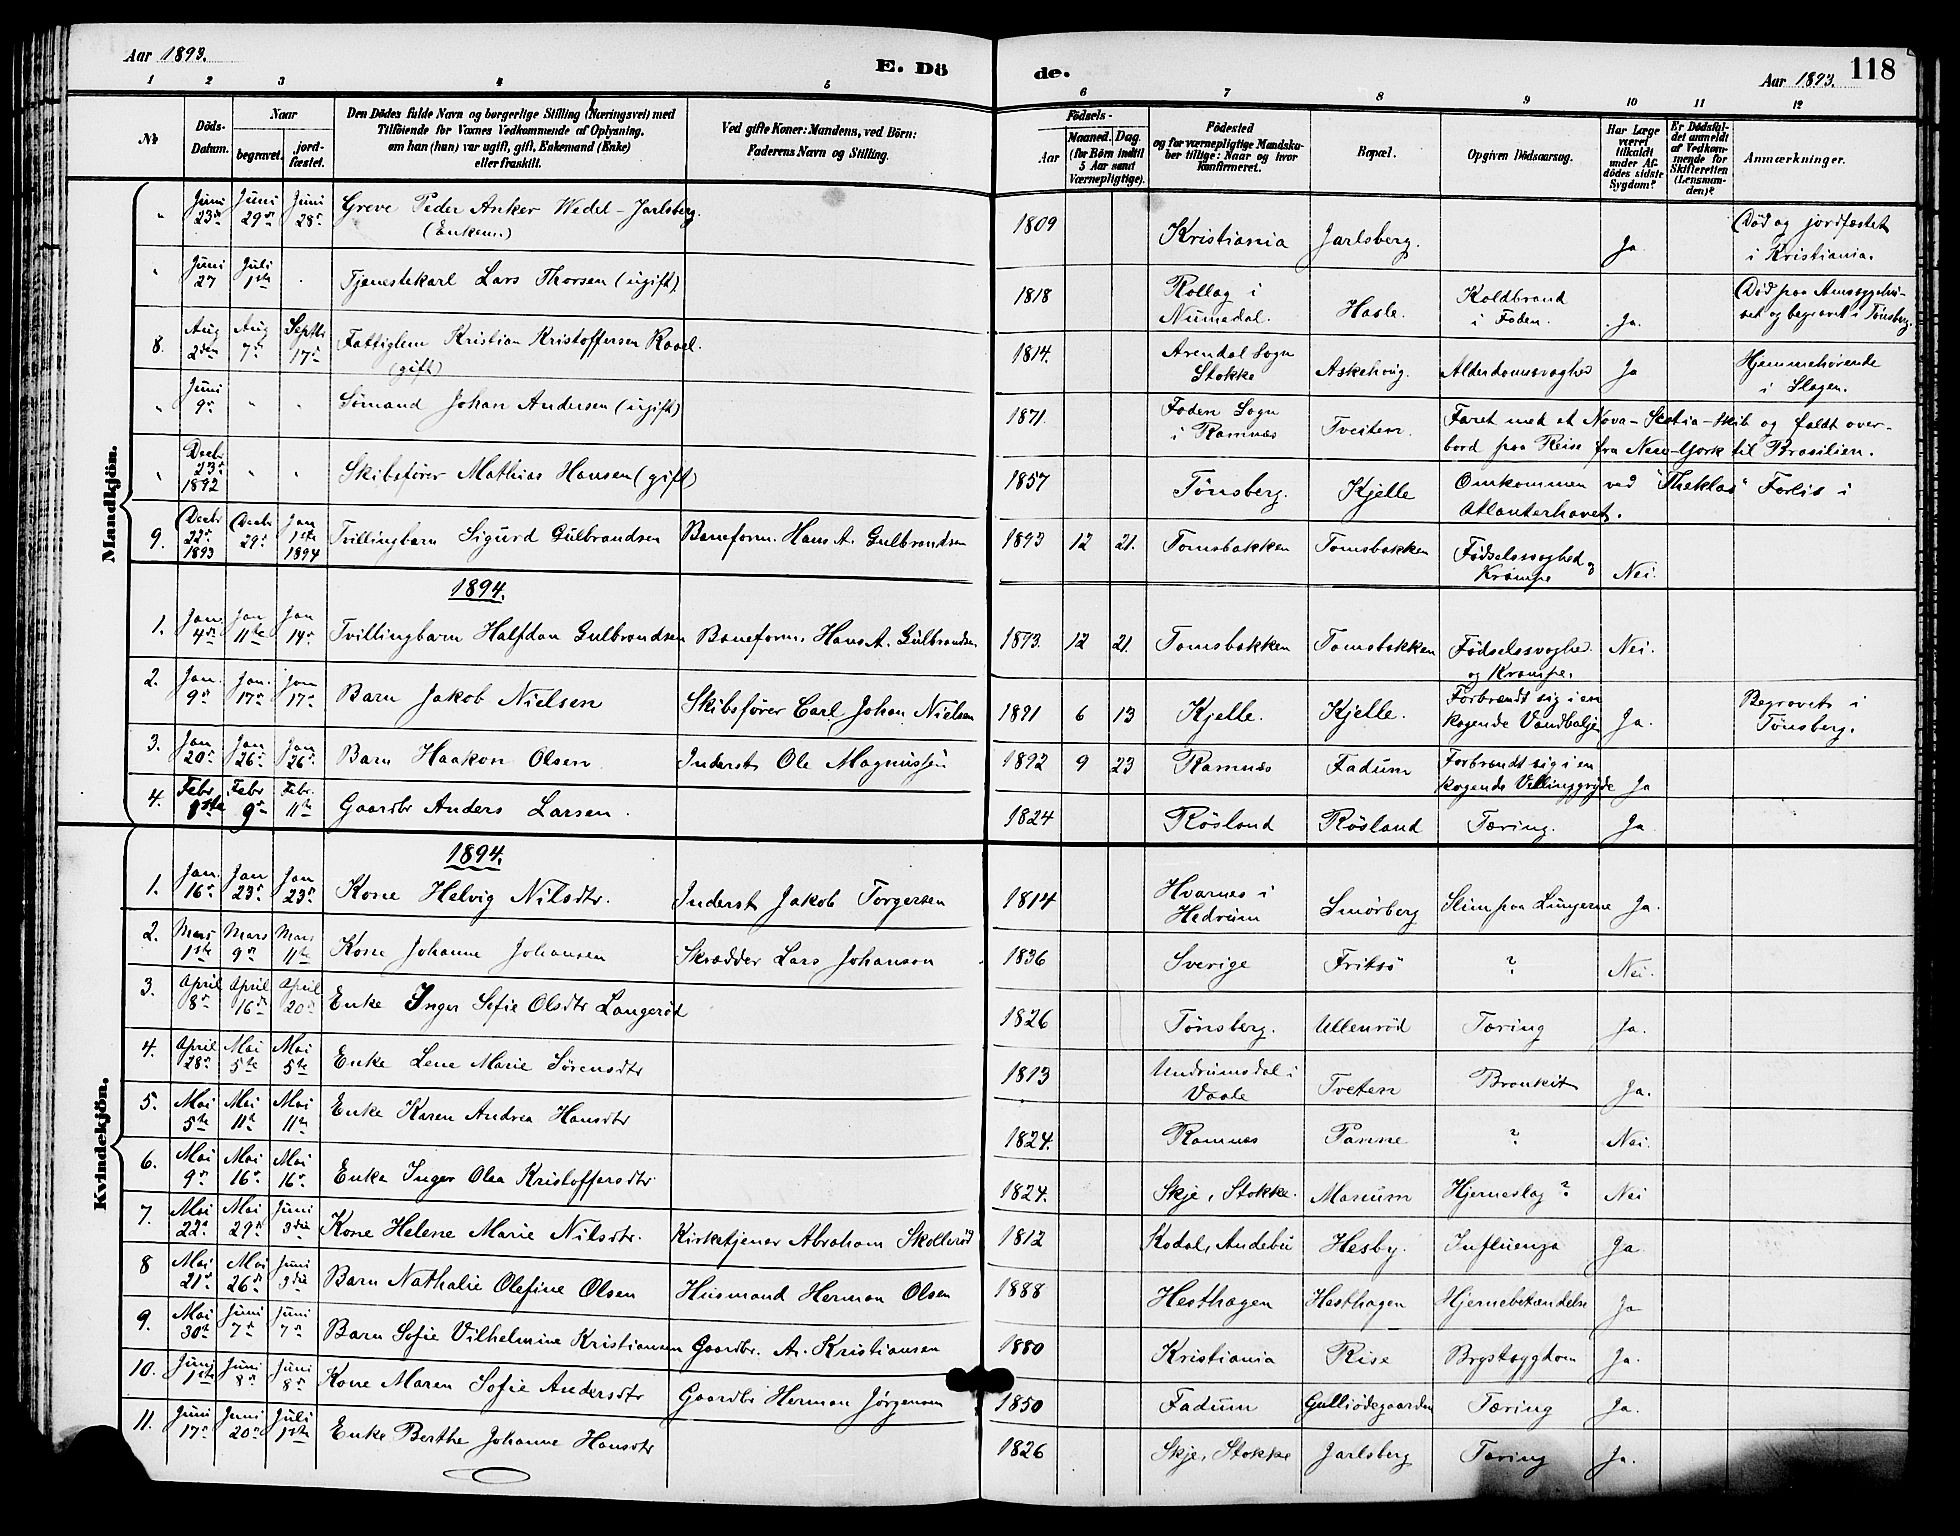 Aar 1893.
E. Dö
de.
Aar 1893.
118
1 2 3 4 5 6 7 8 9 10 11 12
№
Döds-Datum.
Naar
begravet.
jord-fæstet.
Den Dödes fulde Navn og borgerlige Stilling (Næringsvei) med
Tilföiende for Voxnes Vedkommende af Oplysning,
om han (hun) var ugift, gift, Enkemand (Enke)
eller fraskilt.
Ved gifte Koner: Mandens, ved Börn:
Faderens Navn og Stilling.
Födsels-
Aar
Maaned. Dag.
(for Börn indtil
5 Aar samt
Værnepligtige).
Födested
og for værnepligtige Mandska-
ber tillige: Naar og hvor
konfirmeret.
Bopæl.
Opgiven Dödsaarsag.
Har Læge
været
tilkaldt
under Af-
dödes sidste
Sygdom?
Er Dödsfal-
det anmeldt
af Vedkom-
mende for
Skifteretten
(Lensman-
den)?
Anmærkninger.
Mandkjön.
" Juni 23de Juni 29de Juni 28de Greve Peder Anker Wedel-Jarlsberg. (Enkem.) 1809 Kristiania Jarlsberg. Ja. Død og jordfæstet i Kristiania.
" Juni 27 Juli 1ste . Tjenestekarl Lars Thorsen (ugift) 1818 Rollag i Numedal. Hasle. Koldbrand i Foden. Ja. Død paa Amtssygehu- set og begravet i Tønsberg.
8. Aug 2den Aug 7de Septbr 17de Fattiglem Kristian Kristoffersen (gift) 1814. Arendal Sogn Stokke Askehoug. Alderdomssvaghed Ja Hjemmehørende i Slagen.
" Juni 9de " " Sømand Johan Andersen (ugift) 1871. Foden Sogn i Ramnæs Tveiten. Faret med et Nova-Scotia-Skib og faldt over-
bord paa Reise fra New-York til Brasilien.
" Decbr 23de 1892 " " Skibsfører Mathias Hansen (gift) 1857 Tønsberg. Kjelle Omkommen ved "Theklas" Forlis i
Atlanterhavet.
9. Decbr 22de 1893 Decbr 29de Jan 1ste 1894 Tvillingbarn Sigurd Gulbrandsen Baneform. Hans A. Gulbrandsen 1893 12 21. Tomsbakken Tomsbakken Fødselssvaghed og Krampe Nei.
1894.
1. Jan. 4de Jan 11te Jan 14de Tvillingbarn Halfdan Gulbrandsen Baneform. Hans A. Gulbrandsen 1893. 12 21. Tomsbakken Tomsbakken Fødselssvaghed og Krampe. Nei.
2. Jan. 9de Jan. 17de Jan 17de Barn Jakob Nielsen Skibsfører Carl Johan Nielsen 1891 6 13 Kjelle. Kjelle. Forbrendt sig i en kogende Vandbalje Ja. Begravet i Tønsberg.
3. Jan 20de Jan 26de Jan 26de Barn Haakon Olsen Inderst Ole Magnussen 1892 9 23 Ramnæs Fadum Forbrendt sig i en kogende Vellinggryde Ja
4. Febr 1ste Febr 9de Febr. 11te Gaardbr Anders Larsen. 1824 Røsland Røsland Tæring. Ja.
Kvindekjön.
1894.
1. Jan. 16de Jan 23de Jan 23de Kone Helvig Nilsdtr. Inderst Jakob Torgersen 1814 Hvarnes i Hedrum Smørberg Slim paa Lungerne Ja.
2. Mars 1ste Mars 9de Mars 11te Kone Johanne Johansen Skrædder Lars Johanson 1836 Sverige Fritsø ? Nei.
3. April 8de April 16de April 20de Enke Inger Sofie Olsdtr Langerød 1826 Tønsberg. Ullenrød Tæring Ja.
4. April 28de Mai 5te Mai 5te Enke Lene Marie Sørensdtr 1813 Undrumsdal i Vaale Tveten Bronkit Ja.
5. Mai 5te Mai 11te Mai 11te Enke Karen Andrea Hansdtr 1824. Ramnes Panne ? Nei.
6. Mai 9de Mai 16de Mai 16de Enke Inger Olea Kristoffersdtr 1824. Skje, Stokke. Manum Hjerneslag? Nei
7. Mai 22de Mai 29de Juni 3die Kone Helene Marie Nilsdtr. Kirketjener Abraham Skollerød 1812 Kodal, Andebu Hesby. Influenza Ja
8 Mai 21de Mai 26de Juni 3die Barn Nathalie Olefine Olsen Husmand Herman Olsen 1888 Hesthagen Hesthagen Hjernebetændelse Ja
9. Mai 30te Juni 7de Juni 7de Barn Sofie Vilhelmine Kristiansen Gaardbr. A. Kristiansen 1880 Kristiania Rise Brystsygdom Ja.
10. Juni 1ste Juni 8de Juni 8de Kone Maren Sofie Andersdtr Gaardbr Herman Jørgensen 1850 Fadum Gulliødegaarden Tæring Ja.
11. Juni 17de Juni 20de Juli 1ste Enke Berthe Johanne Hansdtr 1826 Skje, Stokke Jarlsberg Tæring Ja.